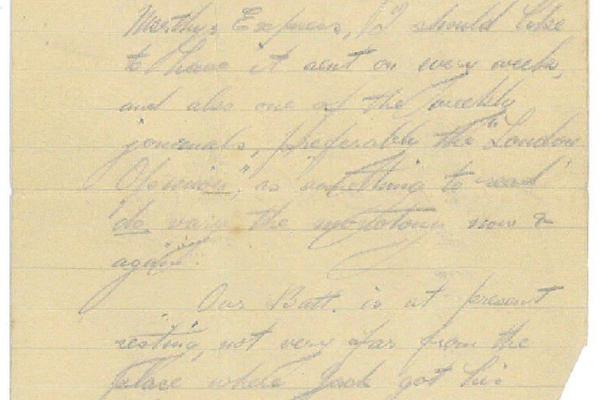 Merthyr Express, (I should like
to have it sent on every week,
and also one of the weekly
journals, preferably the "London
Opinion", as something to read
do vary the monotony now &
again.
Our Batt. is at present
resting, not very far from the
place where Jack got his